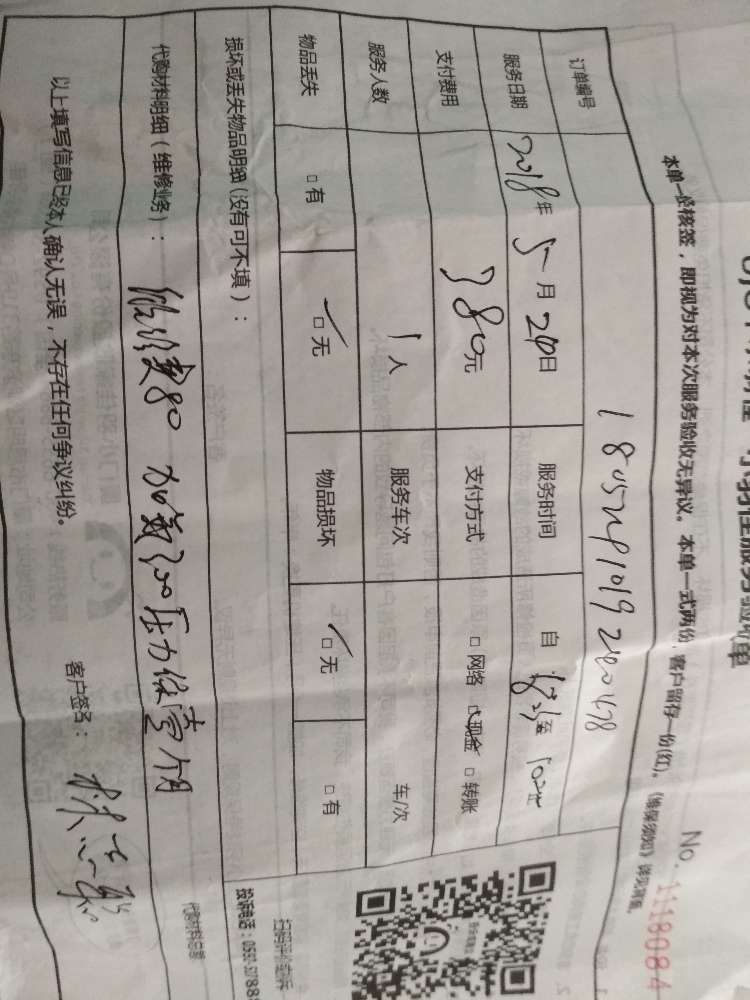 服务验收单
本单一经核签，即视为对本次服务验收无异议。本单一式两份，客户留存一份(红)。《维保须知》详见背面。
No. 1118084
订单编号
服务日期 2018年5月24日 服务时间 自 至
支付费用 380元 支付方式 □网络 □现金 □转账
服务人数 1人 服务车次 车/次
物品丢失 □有 □无 物品损坏 □无 □有
损坏或丢失物品明细(没有可不填)：
代购材料明细(维修业务)： 维修费80 加氟300 压力保壹个月
代购材料总额
扫码评价投诉
投诉电话：
以上填写信息已经本人确认无误，不存在任何争议纠纷。
客户签名：